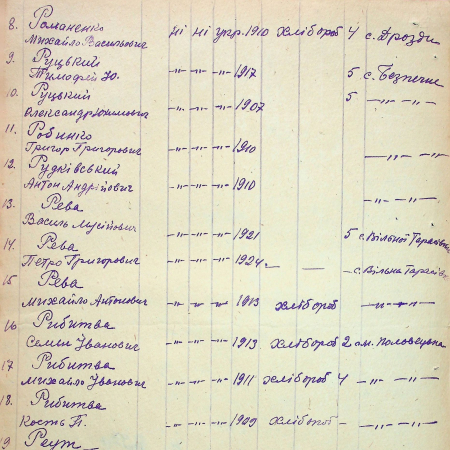 8. Романенко
Михайло Васильович ні ні укр. 1910 хлібороб 4 с. Дрозди
9. Руцький
Тимофей Ю. -"- -"- -"- 1917 5 с. Безпечне
10. Руцький 5 -"- -"-
Олександр Юхимович -"- -"- -"- 1907
11. Робинко
Григор Григорович -"- -"- -"- 1910 -"- -"-
12. Рудківський
Антон Андрійович -"- -"- -"- 1910
13. Рева -"- -"-
Василь Мусійович -"- -"- -"- 1921 5 с. Вільної Тарасівки
14. Рева
Петро Григорович -"- -"- -"- 1924. — — с. Вільна Тарасівка
15 Рева
Михайло Антонович -"- -"- -"- 1913 хлібороб -"- -"-
16 Рибитва
Семен Іванович -"- -"- -"- 1913 хлібороб 2 ст. Половецька
17 Рибитва
Михайло Іванович -"- -"- -"- 1911 хлібороб 4 -"- -"-
18. Рибитва
Кость П. -"- -"- -"- 1909 хлібороб - -"- -"-
19 Реут